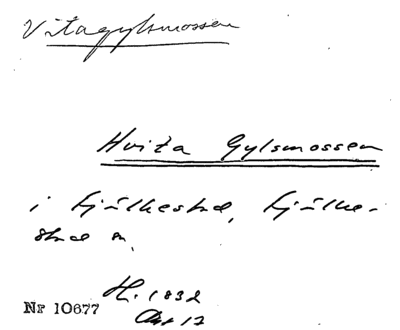 Vitagylsmossen
Hvita Gylsmossen
i Fjälkestad, Fjälke-
stad s.
H. 1832
Akt 12
Nr 10677